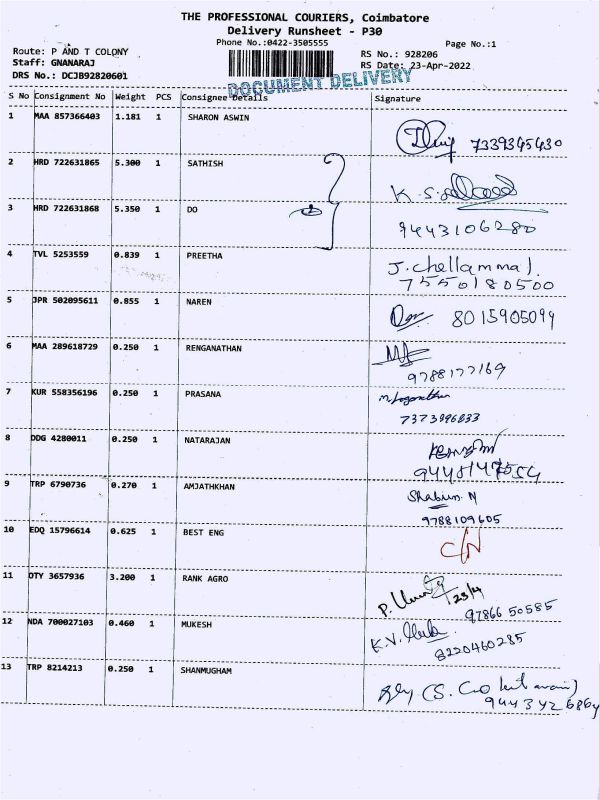 THE PROFESSIONAL COURIERS, Coimbatore
Delivery Runsheet - P30
Phone No.:0422-3505555
Page No.:1
Route: P AND T COLONY
RS No.: 928206
Staff: GNANARAJ
RS Date: 23-Apr-2022
DRS No.: DCJB92820601
DOCUMENT DELIVERY
S No Consignment No Weight PCS Consignee Details Signature
1 MAA 857366403 1.181 1 SHARON ASWIN
7339345430
2 HRD 722631865 5.300 1 SATHISH
3 HRD 722631868 5.350 1 DO
9443106280
4 TVL 5253559 0.839 1 PREETHA J. chellammal.
7550180500
5 JPR 502095611 0.855 1 NAREN 8015905099
6 MAA 289618729 0.250 1 RENGANATHAN
9788177169
7 KUR 558356196 0.250 1 PRASANA
7373996833
8 DDG 4280011 0.250 1 NATARAJAN
9 TRP 6790736 0.270 1 AMJATHKHAN
9788109605
10 EDQ 15796614 0.625 1 BEST ENG
C/N
11 OTY 3657936 3.200 1 RANK AGRO
23/4
97866 50585
12 NDA 700027103 0.460 1 MUKESH
8220460285
13 TRP 8214213 0.250 1 SHANMUGHAM